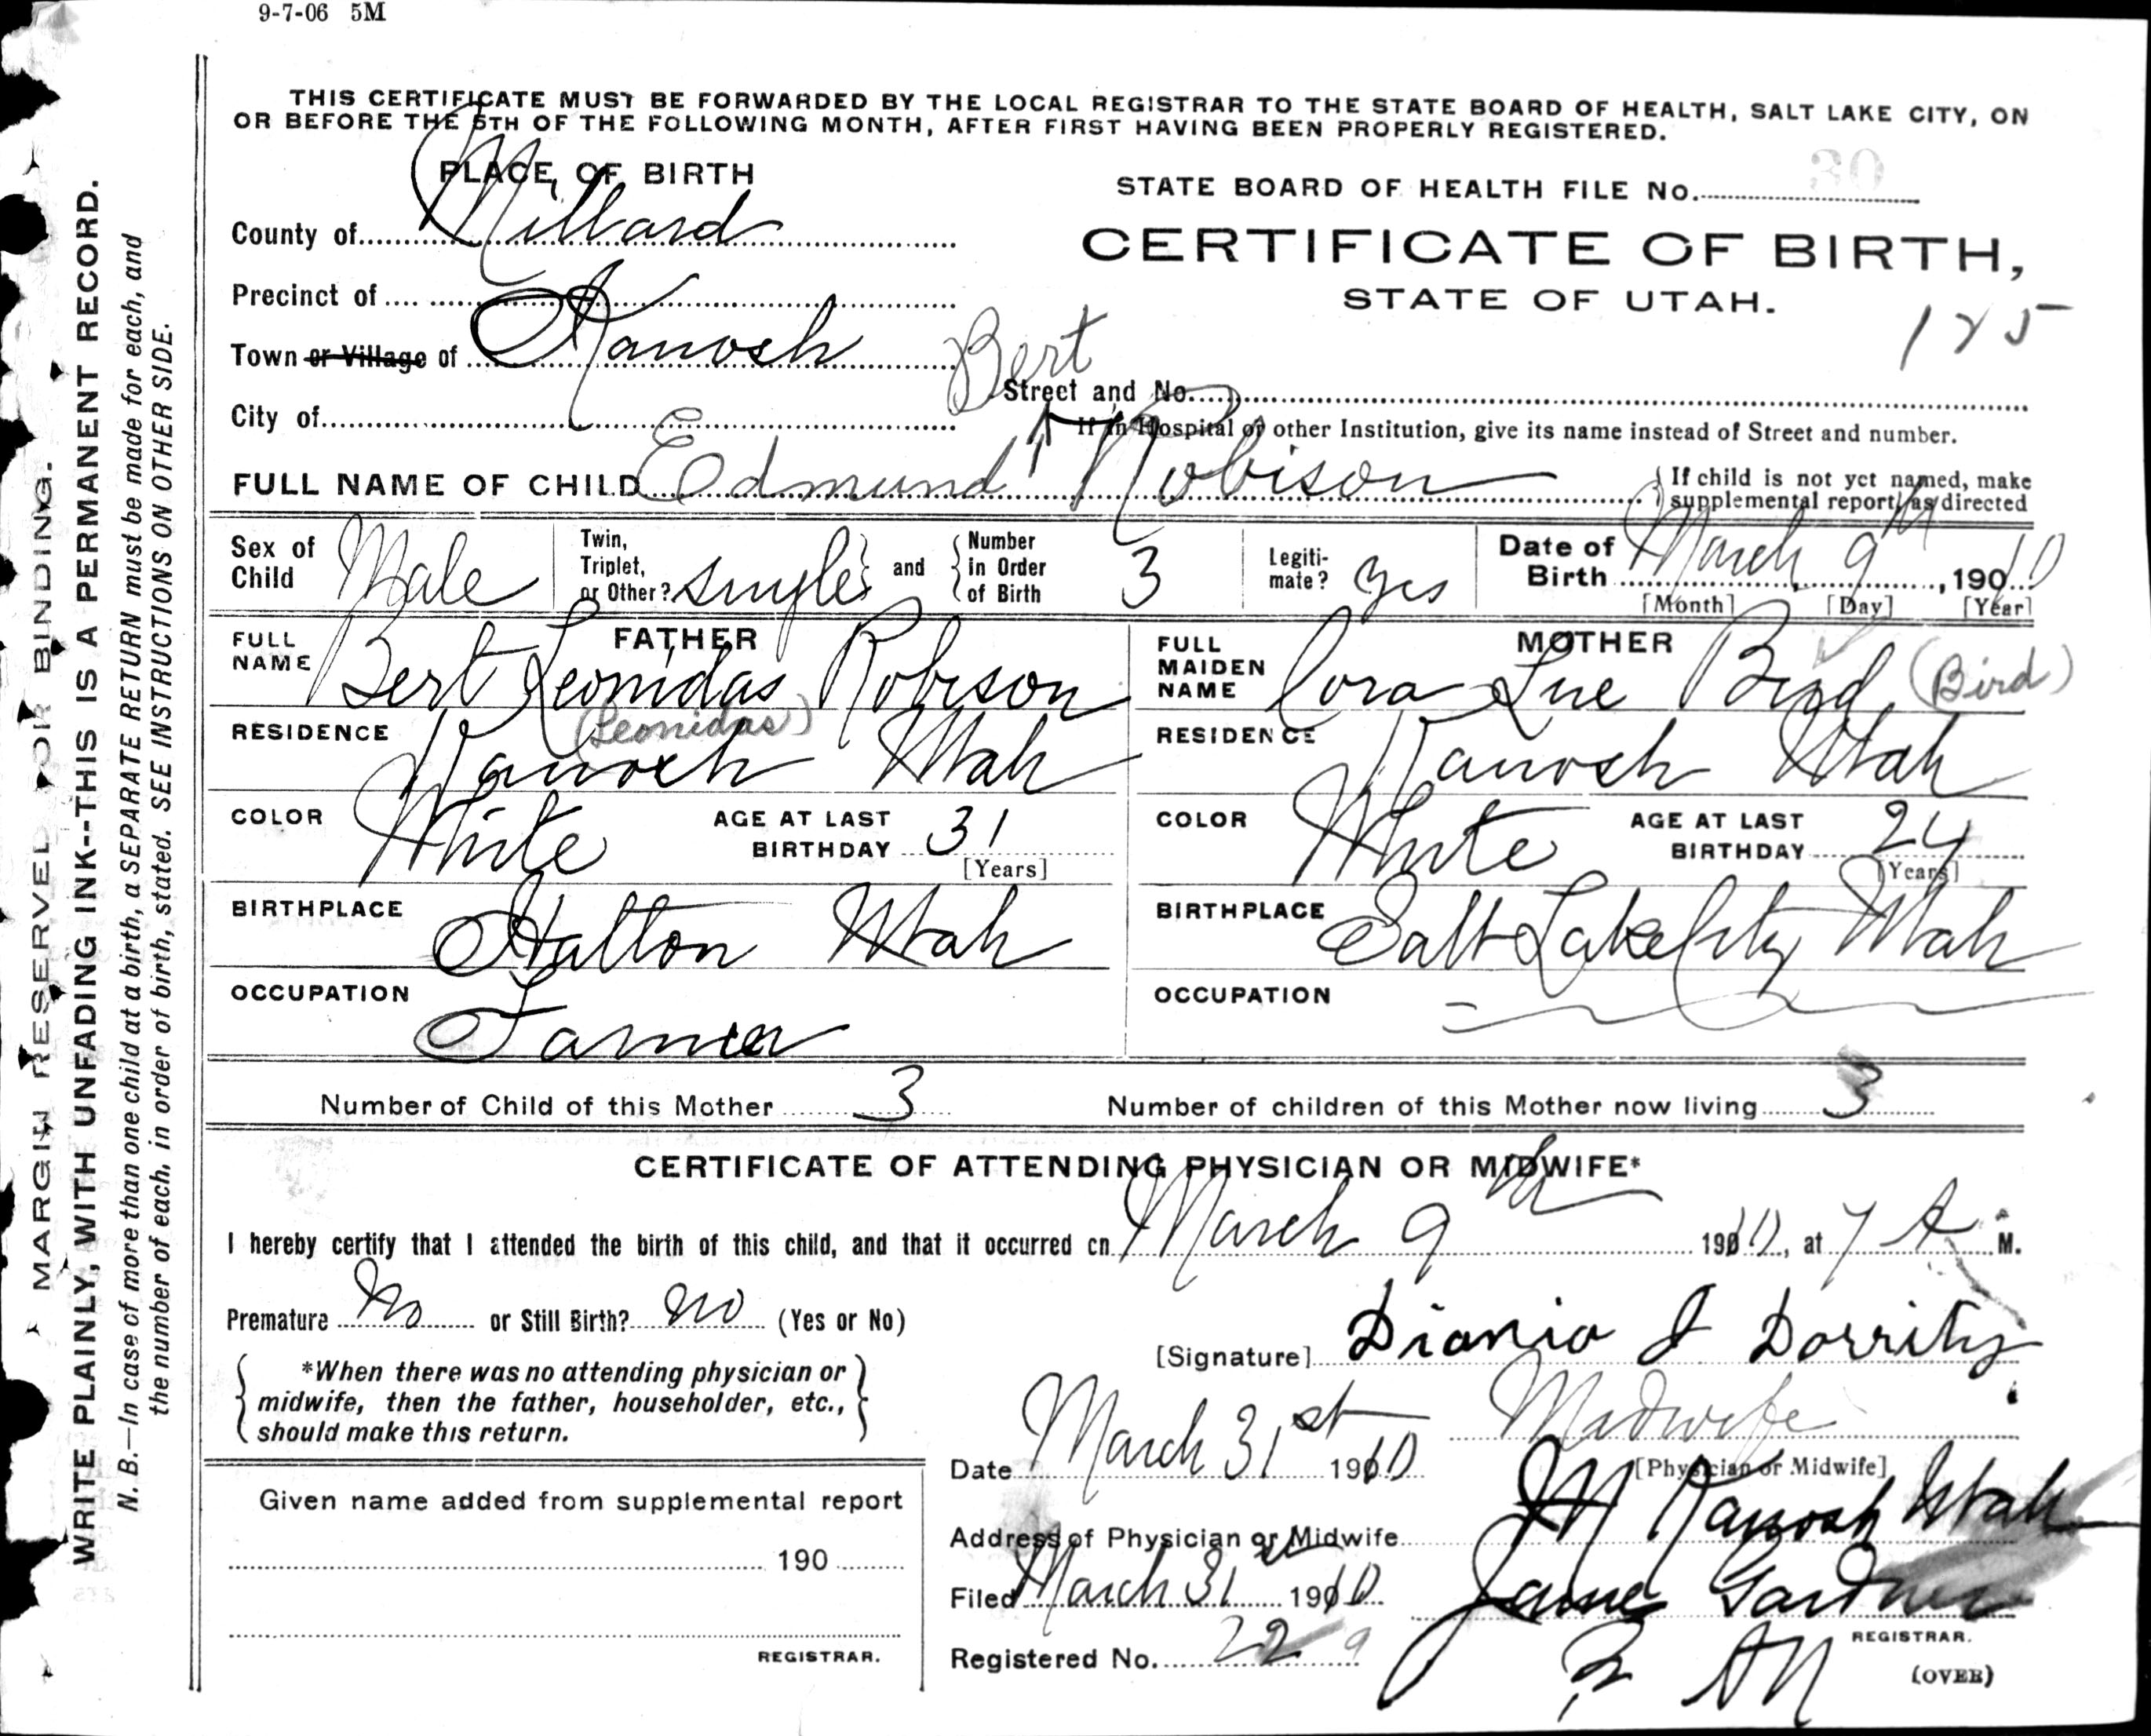 9-7-06 5M
THIS CERTIFICATE MUST BE FORWARDED BY THE LOCAL REGISTRAR TO THE STATE BOARD OF HEALTH, SALT LAKE CITY, ON
OR BEFORE THE 5TH OF THE FOLLOWING MONTH, AFTER FIRST HAVING BEEN PROPERLY REGISTERED.
PLACE OF BIRTH
County of Millard
Precinct of
Town or Village of Kanosh
City of
STATE BOARD OF HEALTH FILE No. 30
CERTIFICATE OF BIRTH,
STATE OF UTAH.
125
Bert
Street and No.
If in Hospital or other Institution, give its name instead of Street and number.
FULL NAME OF CHILD Edmund Robison
If child is not yet named, make
supplemental report, as directed
Sex of Child Male
Twin, Triplet, or Other? single and Number in Order of Birth 3
Legitimate? yes
Date of Birth March 9th, 1910
[Month] [Day] [Year]
FATHER
FULL NAME Bert Leonidas Robison
(Leonidas)
RESIDENCE Kanosh Utah
COLOR White AGE AT LAST BIRTHDAY 31
[Years]
BIRTHPLACE Hatton Utah
OCCUPATION Farmer
MOTHER
FULL MAIDEN NAME Cora Lue Bird (Bird)
RESIDENCE Kanosh Utah
COLOR White AGE AT LAST BIRTHDAY 24
[Years]
BIRTHPLACE Salt Lake City Utah
OCCUPATION
Number of Child of this Mother 3 Number of children of this Mother now living 3
CERTIFICATE OF ATTENDING PHYSICIAN OR MIDWIFE*
I hereby certify that I attended the birth of this child, and that it occurred on March 9th 1910, at 7 A. M.
Premature No or Still Birth? No (Yes or No)
*When there was no attending physician or
midwife, then the father, householder, etc.,
should make this return.
[Signature] Diania J Dorrity
Midwife
[Physician or Midwife]
Date March 31st 1910
Address of Physician or Midwife Kanosh Utah
Filed March 31st 1910
Gardner
REGISTRAR.
Registered No. 22 9
(OVER)
Given name added from supplemental report
190
REGISTRAR.
MARGIN RESERVED FOR BINDING.
WRITE PLAINLY, WITH UNFADING INK--THIS IS A PERMANENT RECORD.
N. B.—In case of more than one child at a birth, a SEPARATE RETURN must be made for each, and
the number of each, in order of birth, stated. SEE INSTRUCTIONS ON OTHER SIDE.